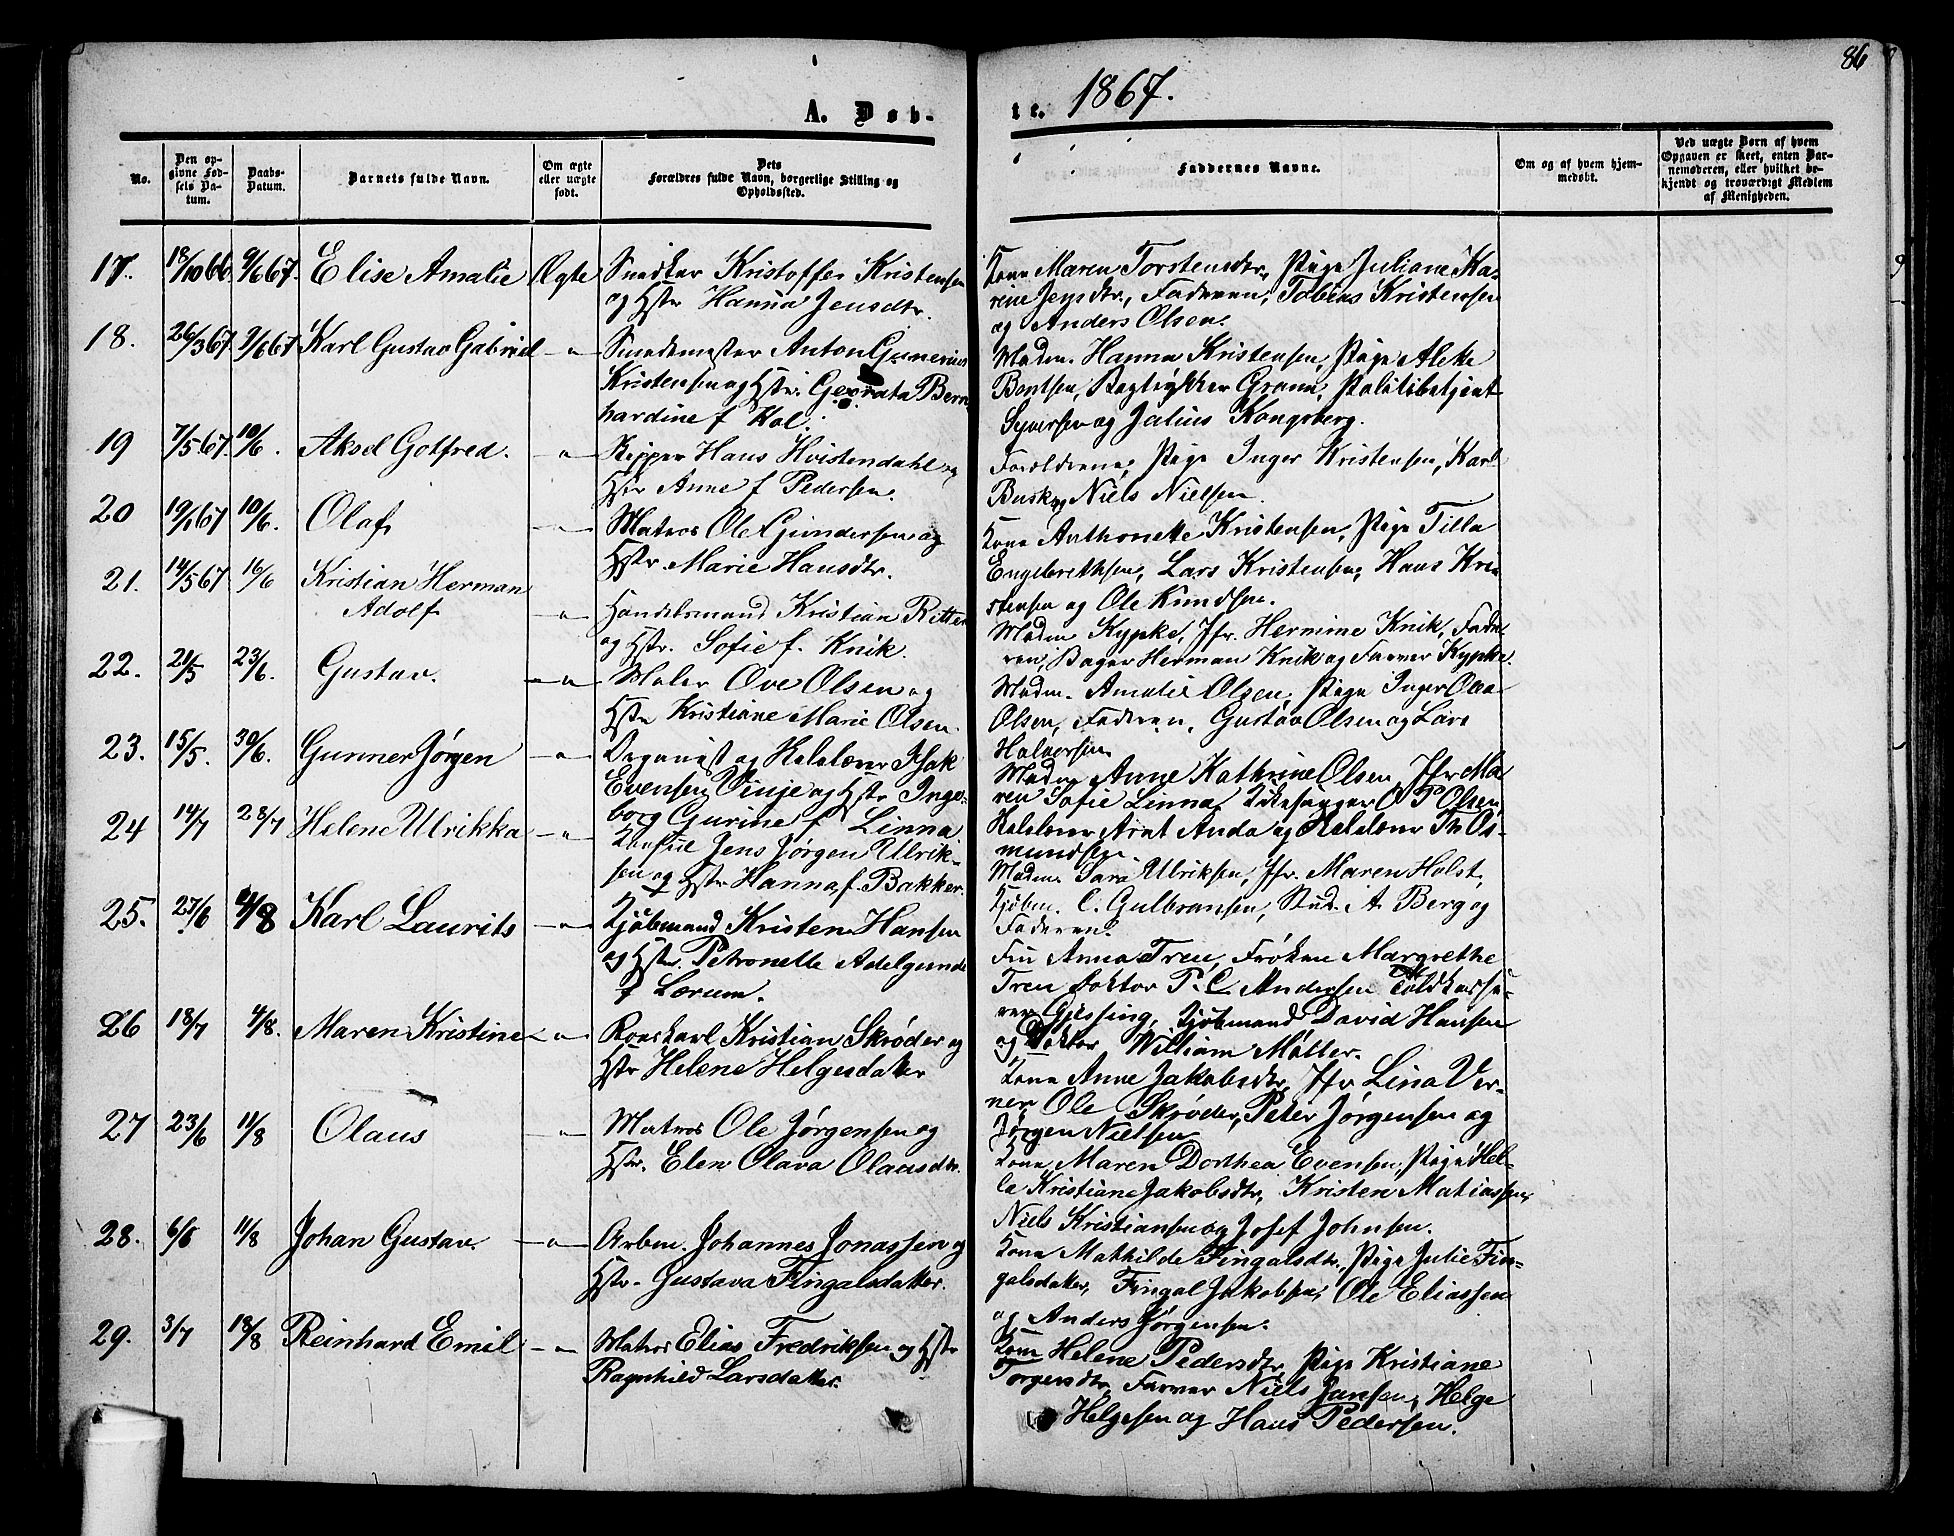 86
A. Døb-
te. 1867.
No.
Den op-
givne Fød-
sels Da-
tum.
Daabs-
Datum.
Barnets fulde Navn.
Om ægte
eller uægte
født.
Dets
Forældres fulde Navn, borgerlige Stilling og
Opholdssted.
Faddernes Navne.
Om og af hvem hjem-
medøbt.
Ved uægte Børn af hvem
Opgaven er skeet, enten Bar-
nemoderen, eller hvilket be-
kjendt og troværdigt Medlem
af Menigheden.
17. 18/10 66. 9/6 67. Elise Amalie Ægte
Snedker Kristoffer Kristensen
og Hstr Hanna Jensdtr.
Kone Maren Torstensdtr, Pige Juliane Ka-
rine Jensdtr, Faderen, Tobias Kristensen
og Anders Olsen.
18. 26/3 67 9/6 67 Karl Gustav Gabriel -"-
Smedemester Anton Gunerius
Kristensen og Hstr. Georata Bern-
hardine f Hol.
Madm. Hanna Kristensen, Pige Alette
Bentsen, Bogtrykker Gram, Politibetjent
Syversen og Julius Kongsberg.
19 7/5 67. 10/6. Aksel Gotfred. -"-
Skipper Hans Hvistendahl og
Hstr Anne f Pedersen.
Forældrene, Pige Inger Kristensen, Karl
Busk og Niels Nielsen.
20 19/1 67 10/6. Olaf -"-
Matros Ole Gundersen og
Hstr. Marie Hansdtr.
Kone Anthonette Kristensen, Pige Tilla
Engebrethsen, Lars Kristensen, Hans Kri-
stensen og Ole Knudsen.
21. 14/5 67. 16/6 Kristian Herman
Adolf -"-
Handelsmand Kristian Ritter
og Hstr. Sofie f. Knik.
Madm Kypke, Jfr. Hermine Knik, Fade-
ren, Bager Herman Knik og Farver Kypke.
22. 21/5 23/6. Gustav. -"-
Maler Ove Olsen og
Hstr Kristiane Marie Olsen.
Madm. Amalie Olsen, Pige Inger Olea
Olsen, Faderen, Gustav Olsen og Lars
Halvorsen
23. 15/5. 30/6. Gunner Jørgen -"-
Organist og Skolelærer Isak
Evensen Vinje og Hstr Inge-
borg Gurine f Linna
Madm Anne Kathrine Olsen, Jfr Ma-
ren Sofie Linna, Kirkesanger O P Olsen
Skolelærer Arnt Anda og Skolelærer Th Os-
mundsen.
24 14/7 28/7 Helene Ulrikka -"-
Konsul Jens Jørgen Ulrik-
sen og Hstr Hanna f. Bakker.
Madm. Sara Ulriksen, Jfr. Maren Holst,
Kjøbm. C. Gulbransen, Stud. A. Berg og
Faderen.
25. 27/6 4/8 Karl Laurits -"-
Kjøbmand Kristen Hansen
og Hstr. Petronelle Adelgunde
f Lorum.
Fru Anna Tren, Frøken Margrethe
Tren Doktor P. C. Andersen Toldkasse-
rer Gjessing, Kjøbmand David Hansen
og Doktor William Møller.
26 18/7 4/8. Maren Kristine -"-
Roerskarl Kristian Skrøder og
Hstr Helene Helgesdatter
Kone Anne Jakobsdtr, Jfr Lina Ver-
ner, Ole Skrøder, Peter Jørgensen og
Jørgen Nielsen
27 23/6 11/8 Olaus -"-
Matros Ole Jørgensen og
Hstr. Elen Olava Olausdtr.
Kone Maren Dorthea Evensen, Pige Hel-
le Kristiane Jakobsdtr, Kristen Matiassen,
Niels Kristiansen og Josef Johnsen.
28. 6/6 11/8 Johan Gustav. -"-
Arbm. Johannes Jonassen og
Hstr. Gustava Fingalsdatter.
Kone Mathilde Fingalsdtr., Pige Julie Fin-
galsdatter, Fingal Jakobsen, Ole Eliassen
og Anders Jørgensen.
29. 3/7 18/8 Reinhard Emil -"-
Matros Elias Fredriksen og Hstr
Ragnhild Larsdatter.
Kone Helene Pedersdtr, Pige Kristiane
Torgersdtr, Farver Niels Jansen, Helge
Helgesen og Hans Pedersen.